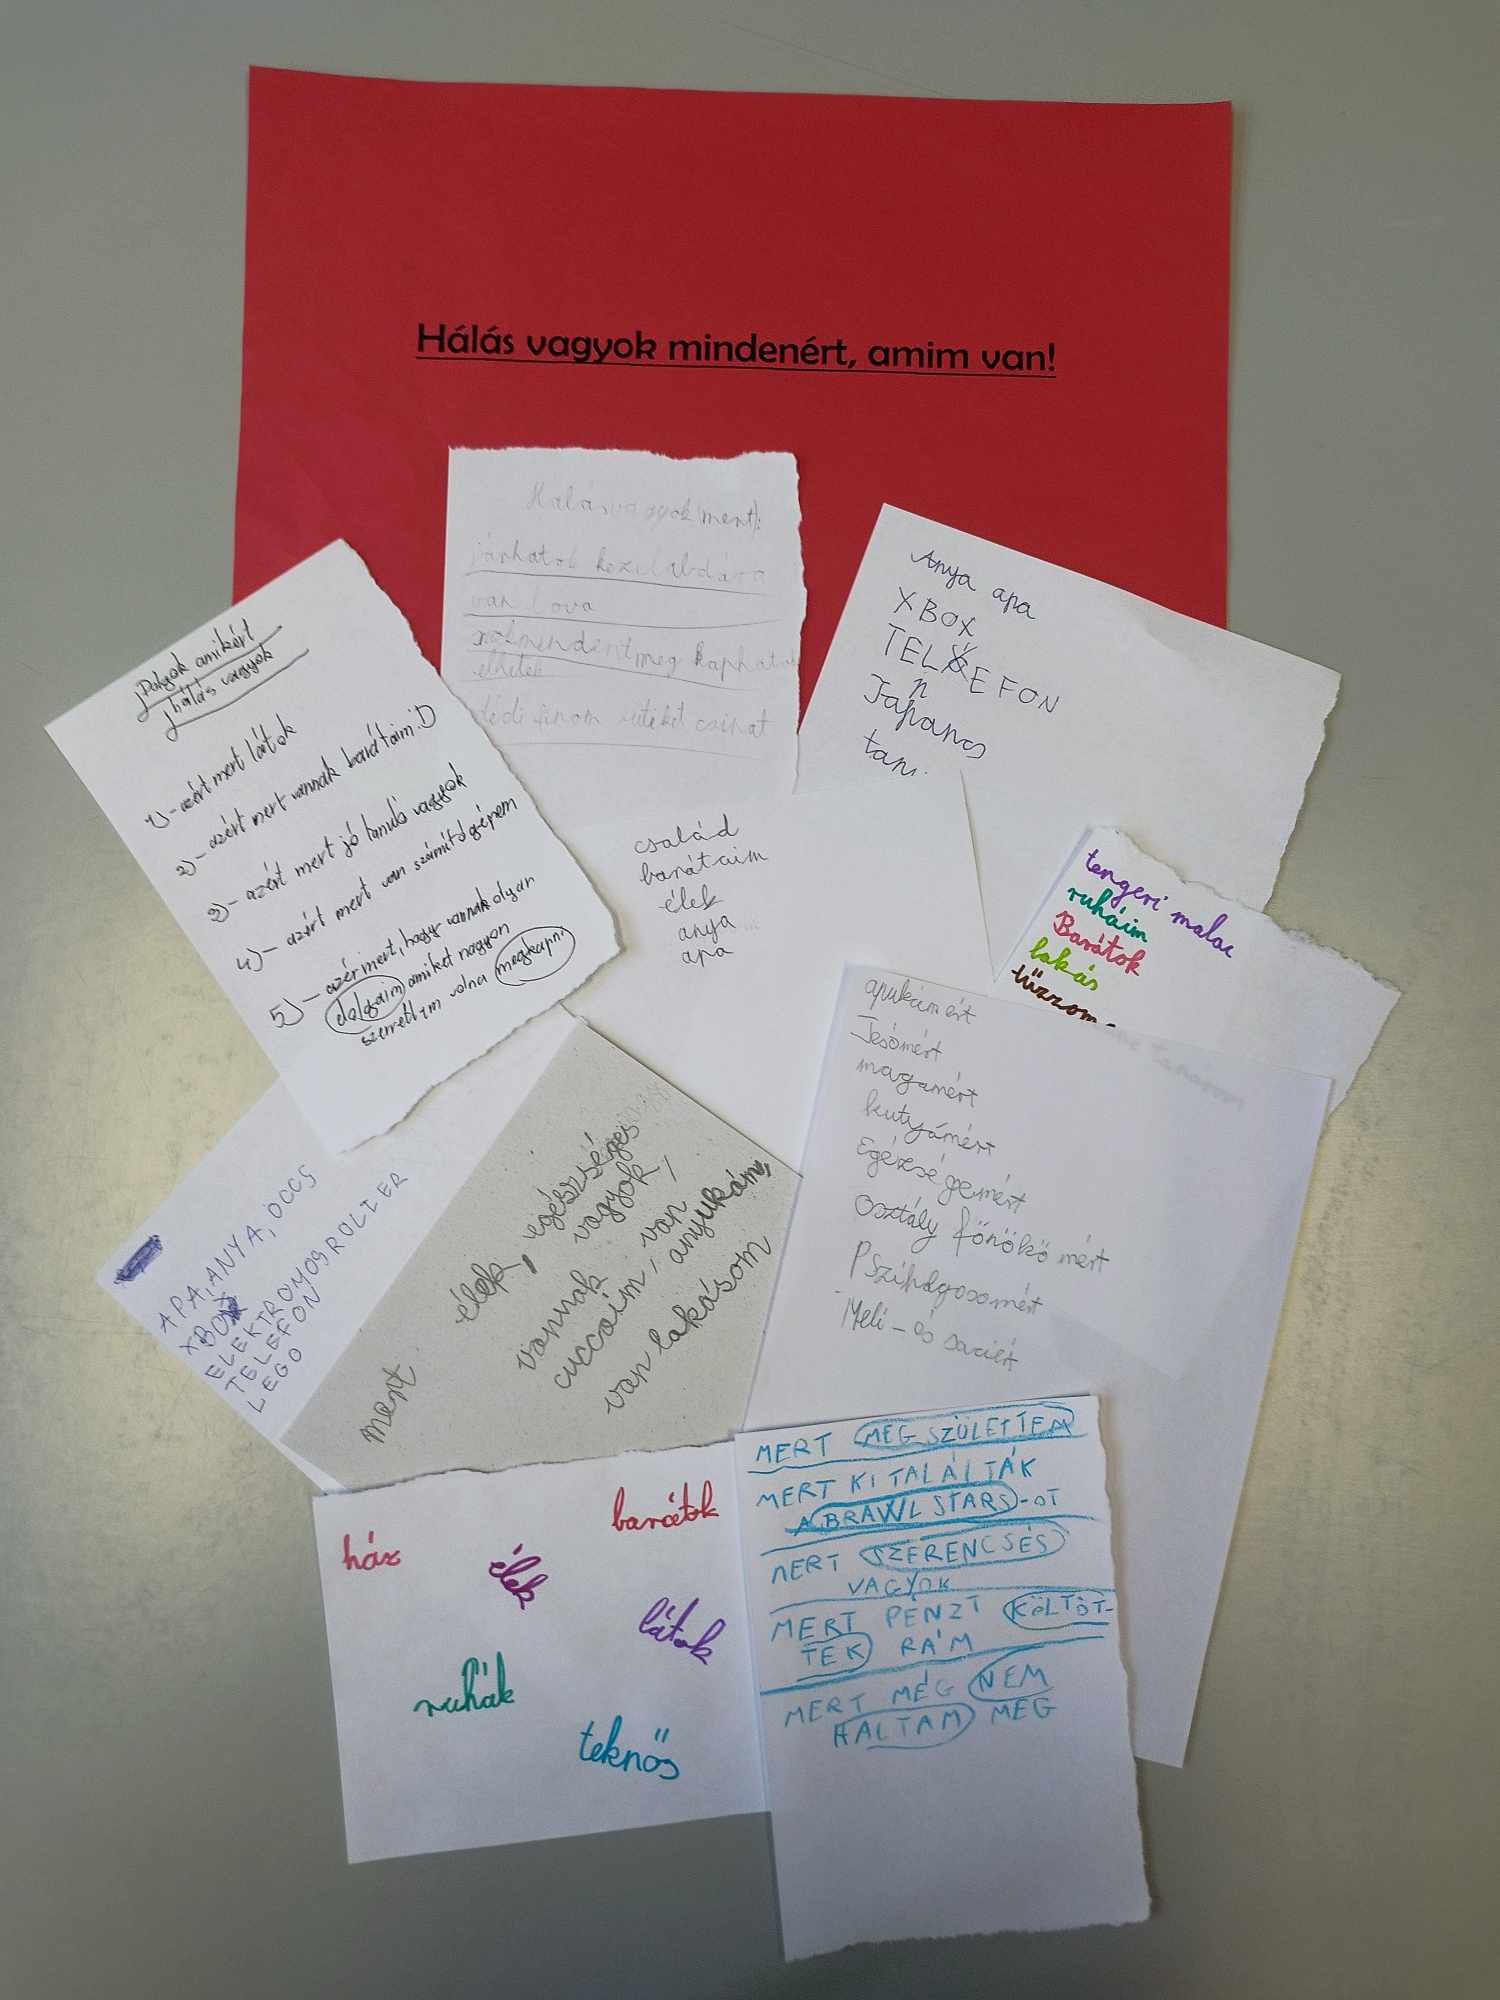 Hálás vagyok mindenért, amim van!
Hálás vagyok mert:
járhatok kézilabdára
van lova
meg kaphatok
dédi finom sütiket csinat
Anya apa
XBOX
TELEFON
Japanos
tan.
Dolgok amikért
hálás vagyok
1)- azért mert látok
2)- azért mert vannak barátaim:D
3)- azért mert jó tanuló vagyok
4)- azért mert van számítógépem
5)- azérmert, hogy vannak olyan
dolgaim amiket nagyon
szerettem volna megkapni
család
barátaim
élek
anya
apa
tengeri malac
ruháim
Barátok
lakás
tűzzom
apukámért
Tesómért
magamért
kutyámért
Egézségemért
osztály főnökömért
Pszihdgosomért
Meli-és saciért
APA, ANYA, ÖCCS
XBOX
ELEKTROMOSROLLER
TELEFON
LEGO
mert élek, egészséges
vagyok,
vannak
cuccaim, van anyukám,
van lakásom
ház
barátok
élek
látok
ruhák
teknős
MERT MEGSZÜLETTEM
MERT KITALÁLTÁK
A BRAWL STARS-OT
MERT SZERENCSÉS
VAGYOK
MERT PÉNZT KÖLTÖT-
TEK RÁM
MERT MÉG NEM
HALTAM MEG